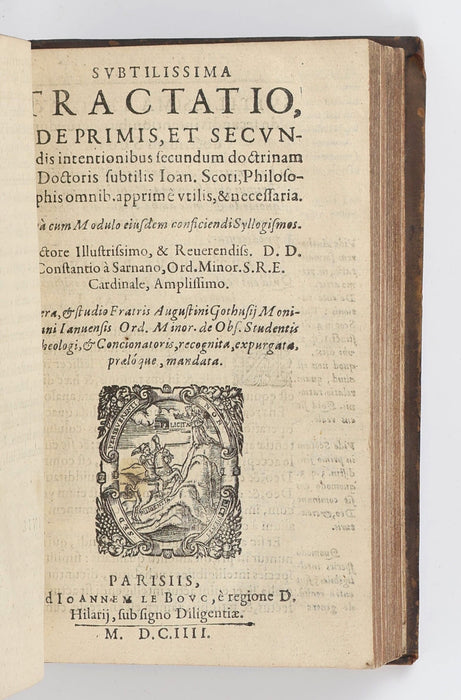 SVBTILISSIMA
TRACTATIO,
DE PRIMIS, ET SECVN-
dis intentionibus secundum doctrinam
Doctoris subtilis Ioan. Scoti, Philoso-
phis omnib. apprimè vtilis, & necessaria.
à cum Modulo eiusdem conficiendi Syllogismos.
ctore Illustrissimo, & Reuerendiss. D. D.
Constantio à Sarnano, Ord. Minor. S. R. E.
Cardinale, Amplissimo.
era, & studio Fratris Augustini Gothusij Moni-
ani Ianuensis Ord. Minor. de Obs. Studentis
heologi, & Concionatoris, recognita, expurgata,
prælóque, mandata.
PARISIIS,
d IOANNEM LE BOVC, è regione D.
Hilarij, sub signo Diligentiæ.
M. D. C. IIII.